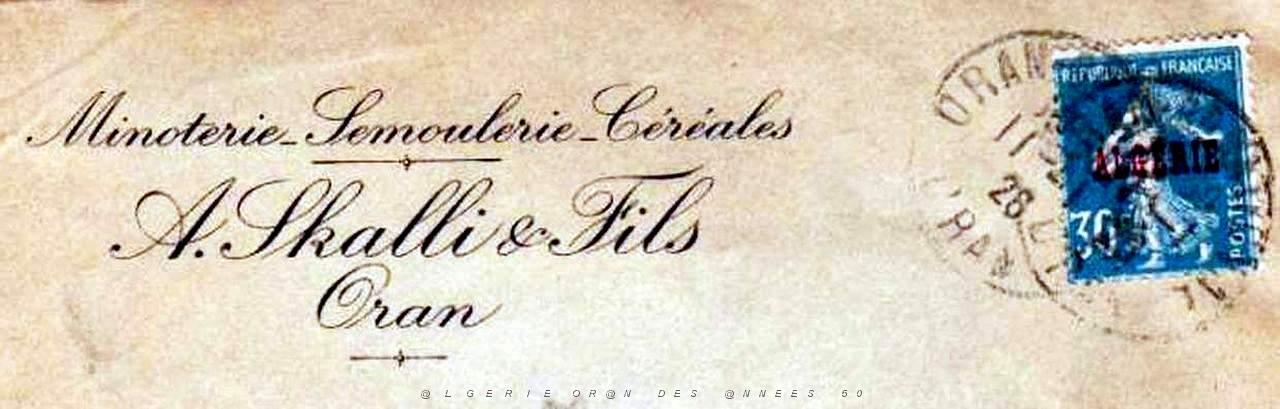 Minoterie - Semoulerie - Céréales
A. Skalli & Fils
Oran
ORAN
11
26
ORAN
RÉPUBLIQUE FRANÇAISE
ALGÉRIE
30
POSTES
@LGERIE OR@N DES @NNEES 60